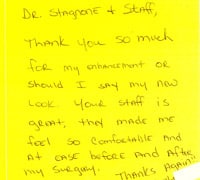 Dr. Stagnone & Staff,
Thank you so much
for my enhancement or
should I say my new
look. Your staff is
great, they made me
feel so comfortable and
at ease before and after
my surgery. Thanks Again!!